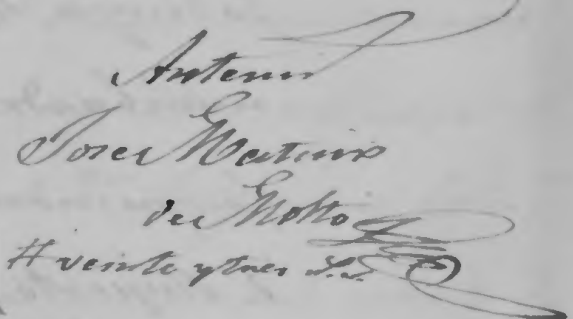 Antonio
Jose Martins
de Motto
# veinte y tres